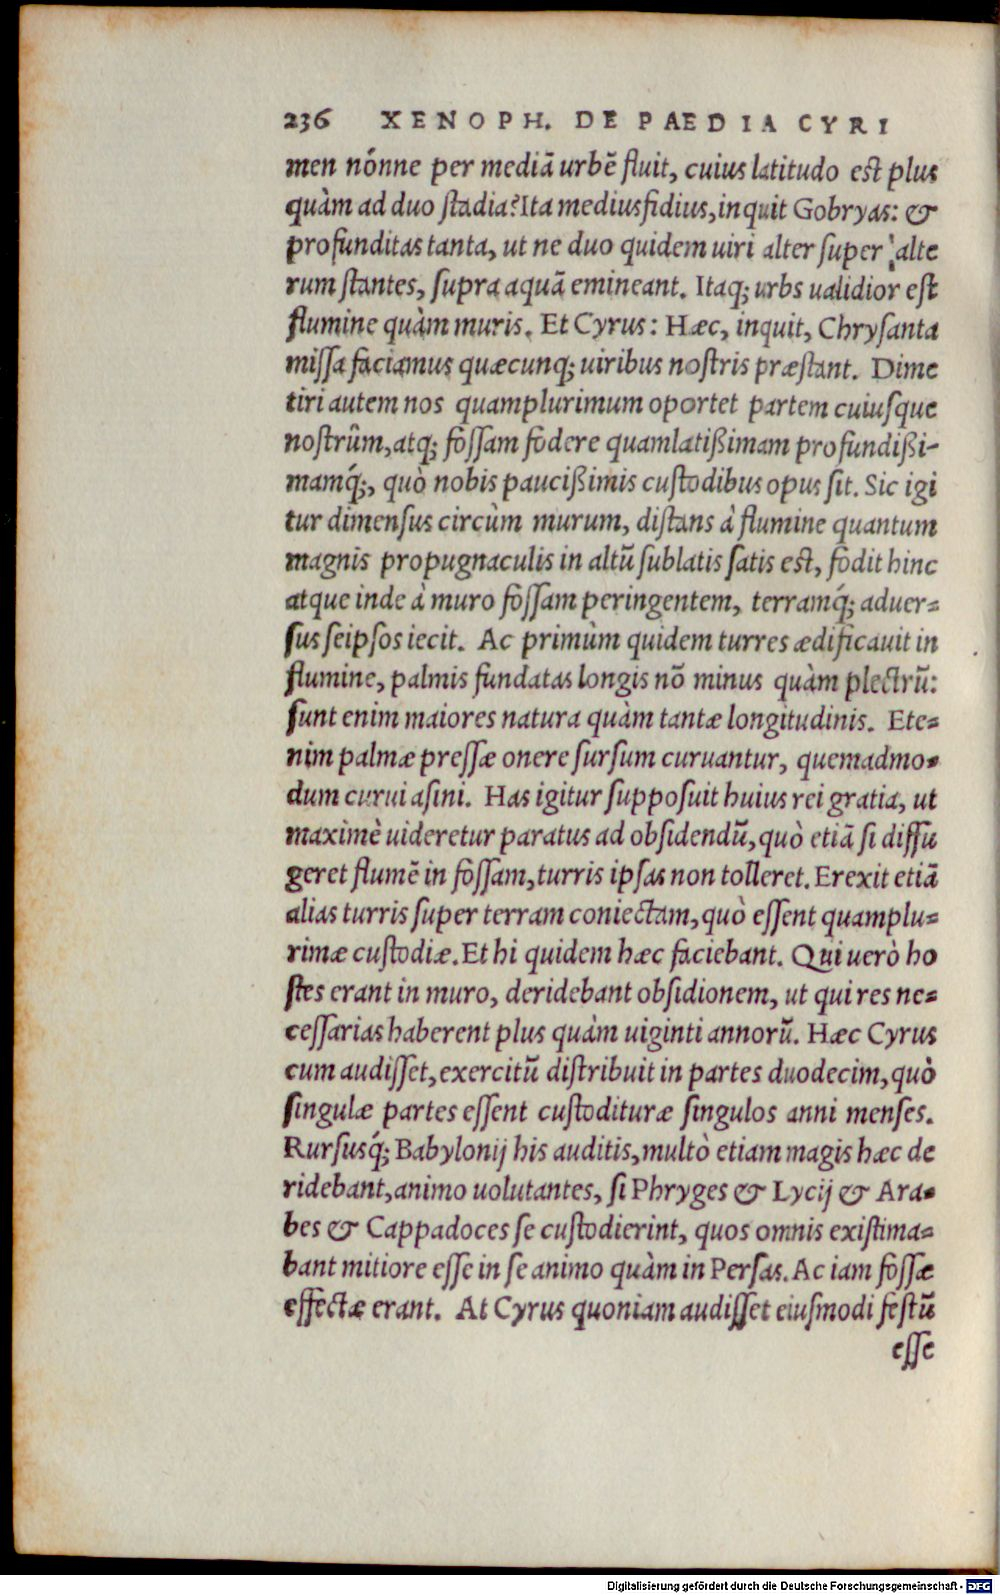 236 XENOPH. DE PAEDIA CYRI
men nónne per mediā urbē fluit, cuius latitudo est plus
quàm ad duo stadia? Ita mediusfidius, inquit Gobryas: &
profunditas tanta, ut ne duo quidem uiri alter super alte
rum stantes, supra aquā emineant. Itaq; urbs ualidior est
flumine quàm muris. Et Cyrus: Hæc, inquit, Chrysanta
missa faciamus quæcunq; uiribus nostris præstant. Dime
tiri autem nos quamplurimum oportet partem cuiusque
nostrûm, atq; fossam fodere quamlatißimam profundißi-
mamq́;, quò nobis paucißimis custodibus opus sit. Sic igi
tur dimensus circùm murum, distans à flumine quantum
magnis propugnaculis in altū sublatis satis est, fodit hinc
atque inde à muro fossam peringentem, terramq́; aduer-
sus seipsos iecit. Ac primùm quidem turres ædificauit in
flumine, palmis fundatas longis nō minus quàm plectrū:
sunt enim maiores natura quàm tantæ longitudinis. Ete-
nim palmæ pressæ onere sursum curuantur, quemadmo-
dum curui asini. Has igitur supposuit huius rei gratia, ut
maximè uideretur paratus ad obsidendū, quò etiā si diffu
geret flumē in fossam, turris ipsas non tolleret. Erexit etiā
alias turris super terram coniectam, quò essent quamplu-
rimæ custodiæ. Et hi quidem hæc faciebant. Qui uerò ho
stes erant in muro, deridebant obsidionem, ut qui res ne-
cessarias haberent plus quàm uiginti annorū. Hæc Cyrus
cum audisset, exercitū distribuit in partes duodecim, quò
singulæ partes essent custoditurӕ singulos anni menses.
Rursusq́; Babylonij his auditis, multò etiam magis hæc de
ridebant, animo uolutantes, si Phryges & Lycij & Ara-
bes & Cappadoces se custodierint, quos omnis existima-
bant mitiore esse in se animo quàm in Persas. Ac iam fossæ
effectæ erant. At Cyrus quoniam audisset eiusmodi festū
esse
Digitalisierung gefördert durch die Deutsche Forschungsgemeinschaft - DFG